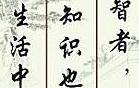 智者，
知识也
生活中